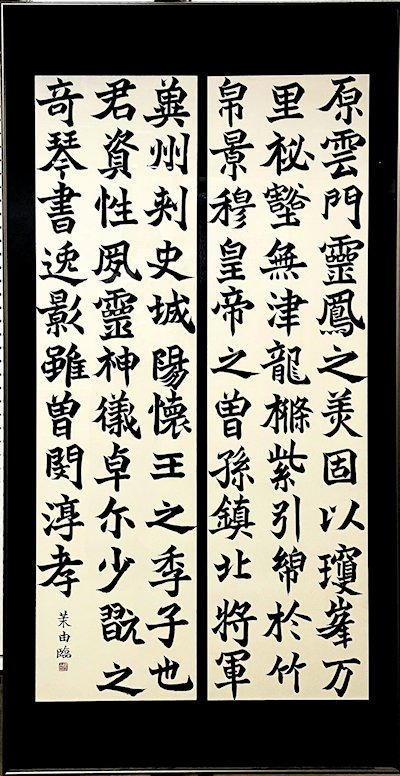 原雲門靈鳳之美固以瓊峯万
里秘壑無津龍樤紫引綿於竹
帛景穆皇帝之曾孫鎮北將軍
冀州刾史城陽懷王之季子也
君資性夙靈神儀卓尒少翫之
奇琴書逸影雖曾閔淳孝
茉由臨